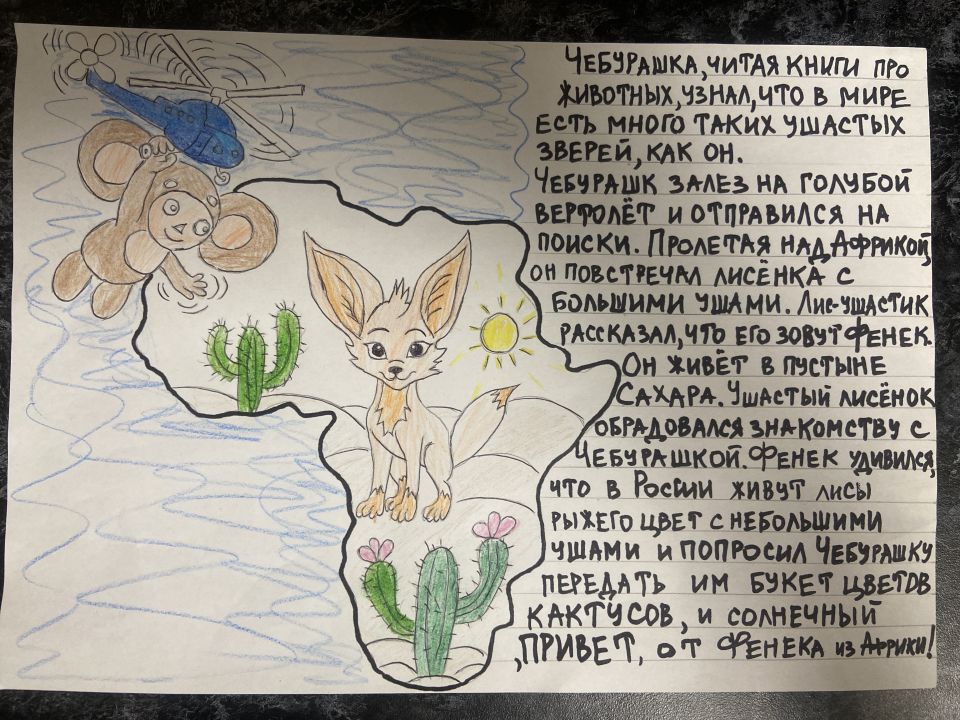 Чебурашка, читая книги про
животных, узнал, что в мире
есть много таких ушастых
зверей, как он.
Чебурашк залез на голубой
вертолёт и отправился на
поиски. Пролетая над Африкой,
он повстречал лисёнка с
большими ушами. Лис-ушастик
рассказал, что его зовут Фенек.
Он живёт в пустыне
Сахара. Ушастый лисёнок
обрадовался знакомству с
Чебурашкой. Фенек удивился,
что в России живут лисы
рыжего цвет с небольшими
ушами и попросил Чебурашку
передать им букет цветов
кактусов, и солнечный
,привет, от Фенека из Африки!